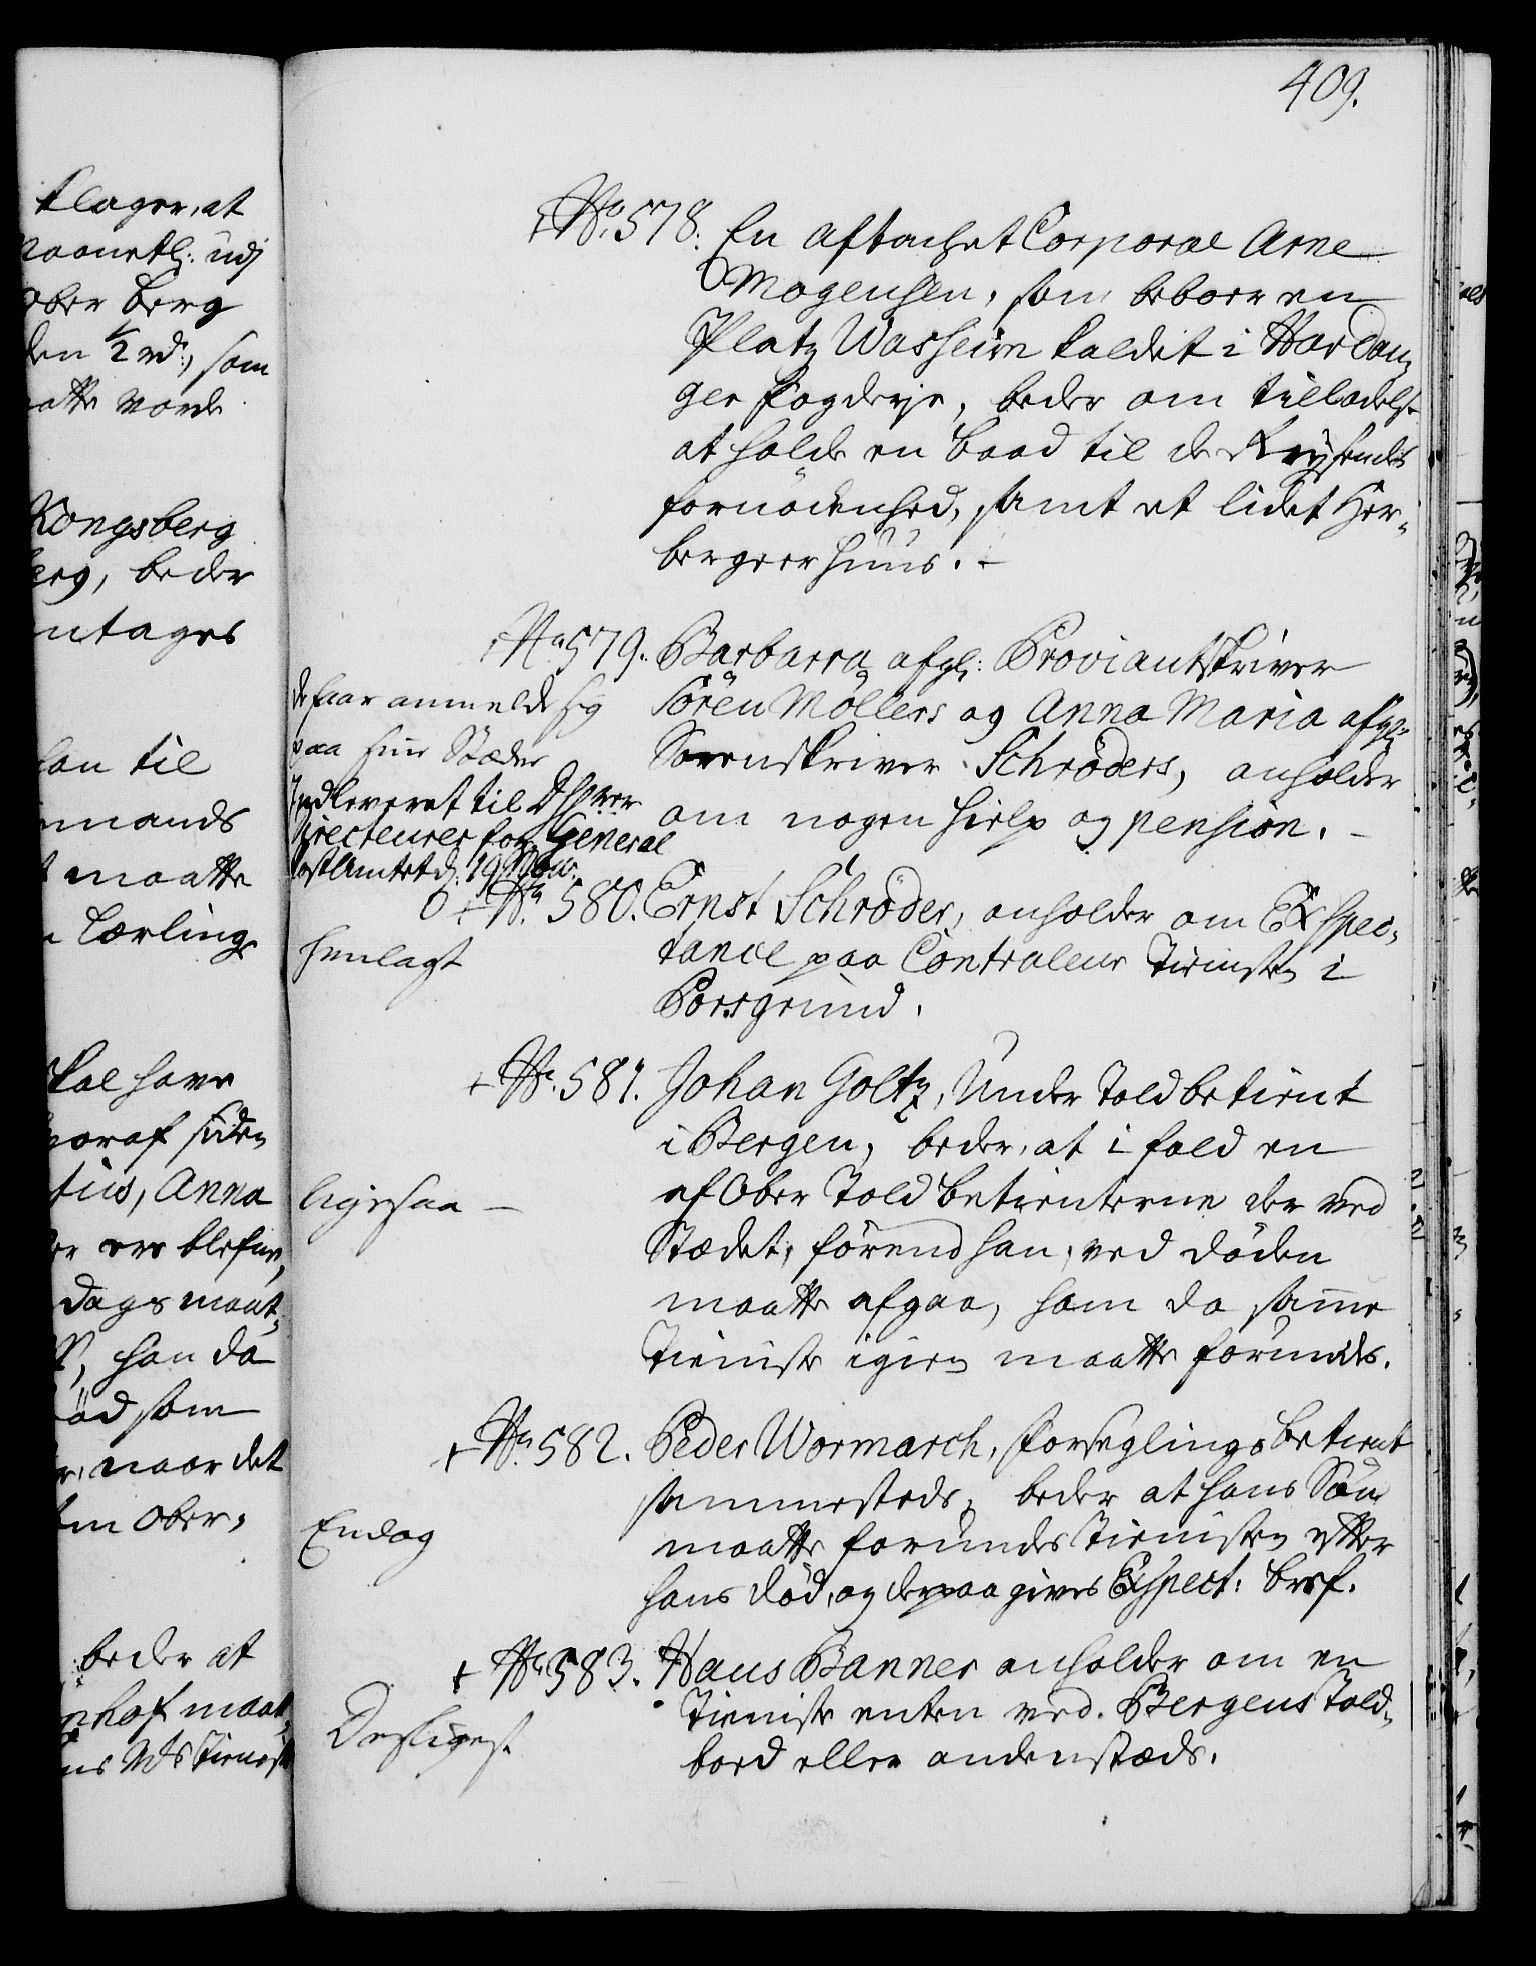 409.
klager, at
maanetl: udj
ober Berg
den ½ rd:, som
maatte vorde
Kongsberg
berg, beder
antages
han til
mands
maatte
Lærling
skal have
hvoraf siden
tius, Anna
er blefven,
dags maat-
han da
død som
naar det
Ober-
beder at
maat-
Tieniste
+ No. 578. En aftachet Corporal Arne
Mogensen, som beboer en
Platz Washeim kaldet i Hardan-
ger fogderje, beder om tilladelse
at holde en baad til de Reysendes
fornödenhed, samt et lidet Her-
bergeer huus. -
+ No 579. Barbarra afgl: Proviantskriver
Sören Möllers og Anna Maria afgl:
Sorenskriver Schröders, anholder
om nogen hielp og pension. -
de faar anmelde sig
paa sine Stæder
Indleveret til DHrer
Directeurer for General
PostAmtet d: 19 Nov:
0 + No. 580. Ernst Schröder, anholder om Exspec-
tance paa Contraleur Tienisten i
Porsgrund.
henlagt
+ No. 581. Johan Goltz, Under Toldbetient
i Bergen, beder, at i fald en
af Ober Told betienterne der ved
Stædet, förend han, ved döden
maatte afgaa, ham da samme
Tieniste igien maatte forundes.
ligesaa -
+ No. 582. Peder Wormarch, forseglings betient
sammesteds, beder at hans Sön
maatte forundes Tienisten efter
hans död, og derpaa gives Exspect: bref.
Endog
+ No. 583. Hans Banner anholder om en
Tieniste enten ved Bergens Told-
bord eller andenstæds.
Desligest